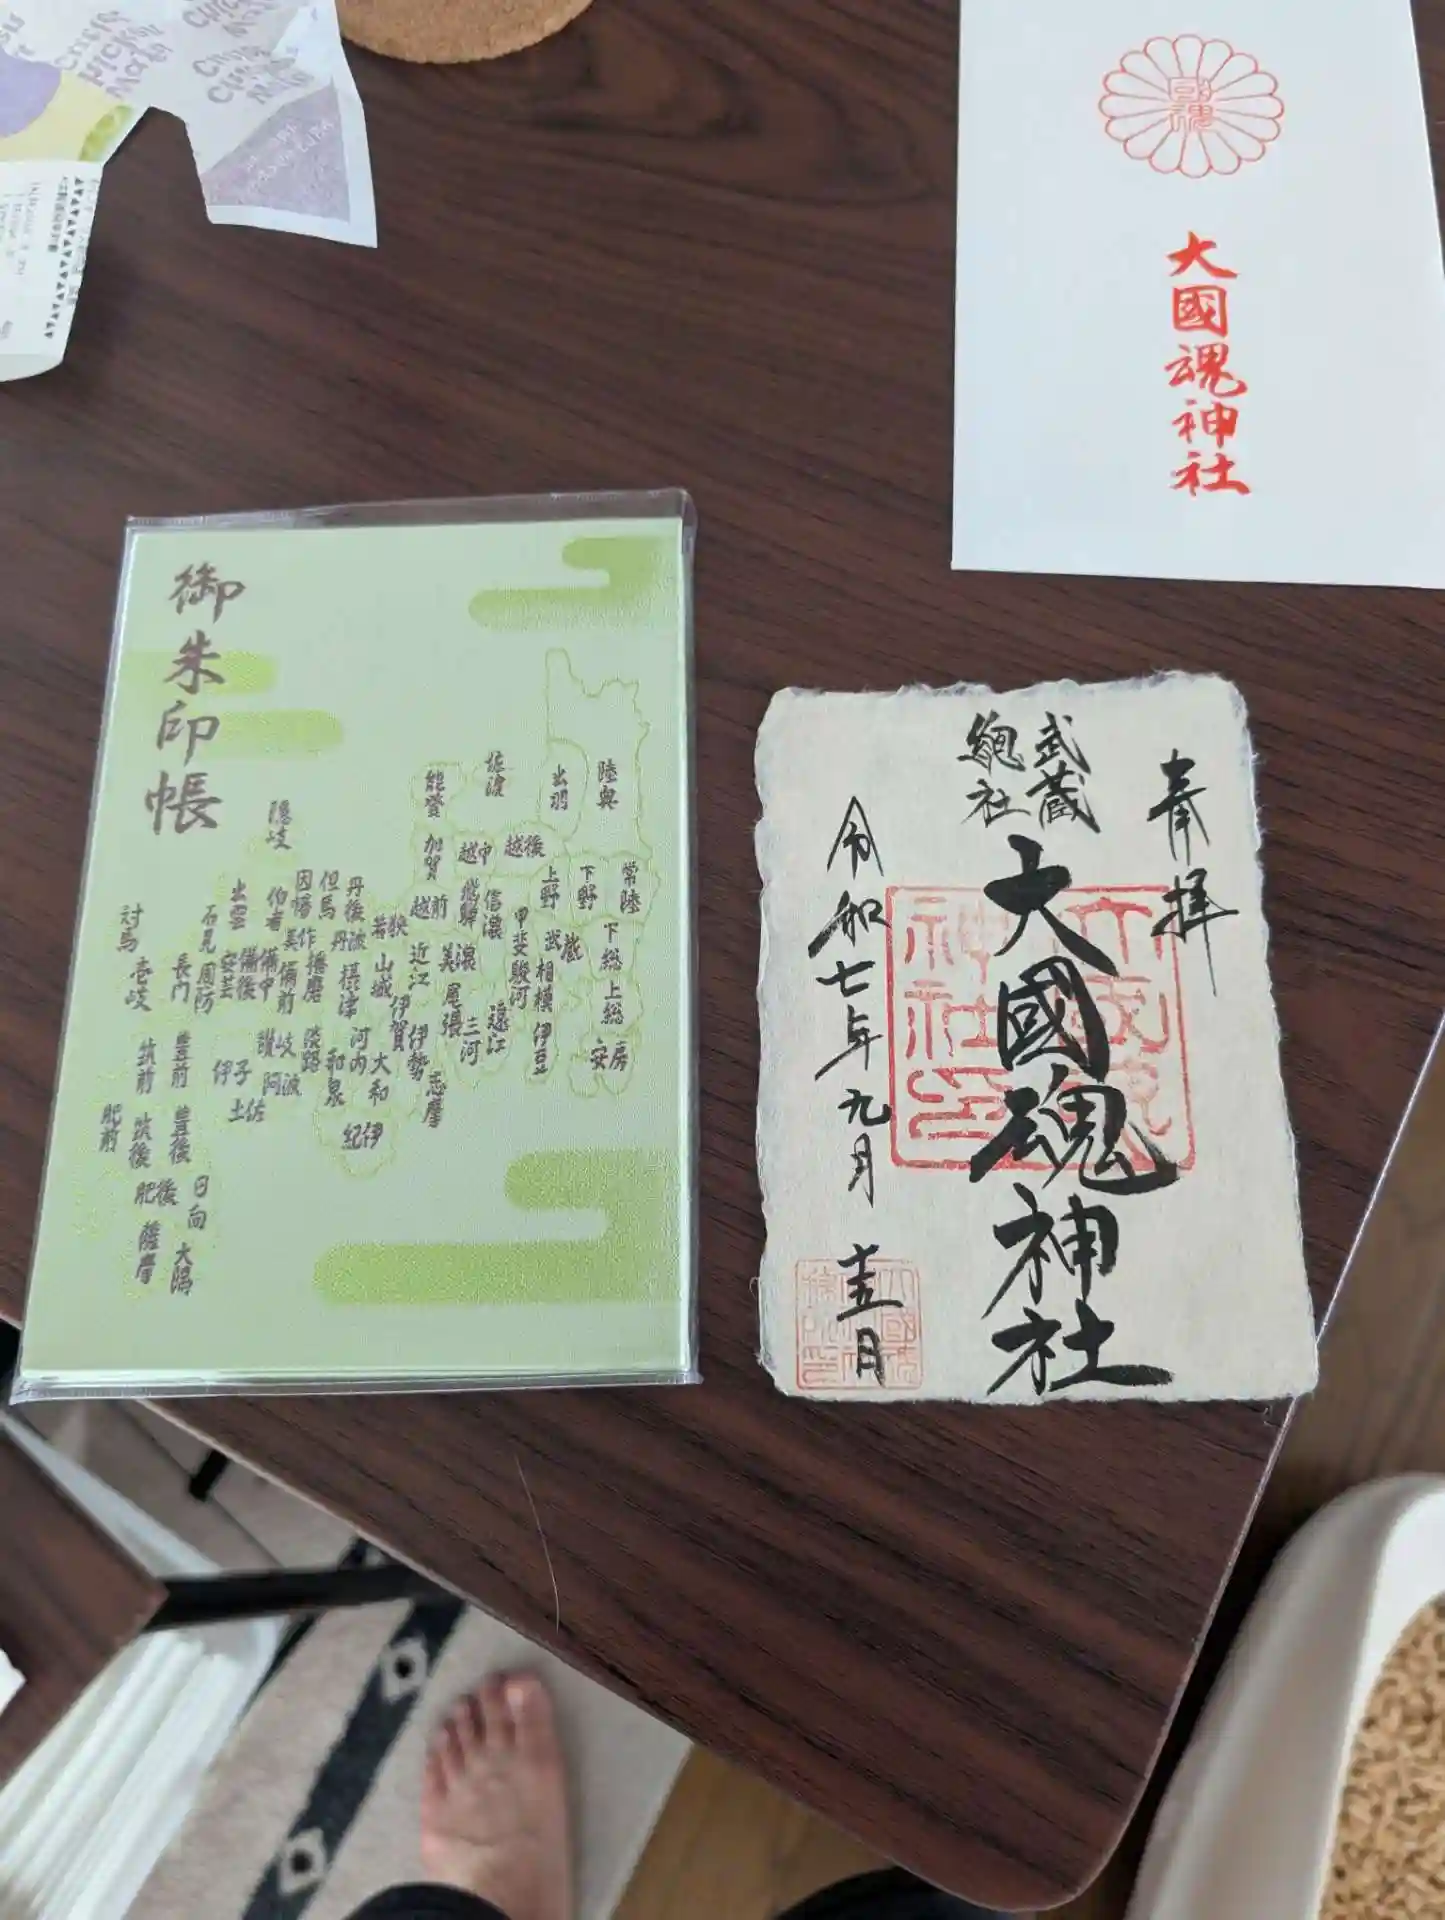 大國魂神社
御朱印帳
陸奥
出羽
佐渡
能登
加賀
越中
越後
隠岐
常陸
下野
上野
信濃
飛騨
越前
若狭
丹後
丹波
但馬
因幡
伯耆
美作
出雲
石見
対馬
壱岐
長門
周防
安芸
備後
備中
備前
播磨
摂津
山城
近江
美濃
尾張
甲斐
駿河
武蔵
相模
下総
上総
安房
伊豆
遠江
三河
伊賀
伊勢
志摩
大和
河内
和泉
淡路
讃岐
阿波
伊予
土佐
紀伊
豊前
筑前
肥前
筑後
豊後
肥後
日向
薩摩
大隅
奉拝
武蔵
總社
大國魂神社
令和七年九月十五日